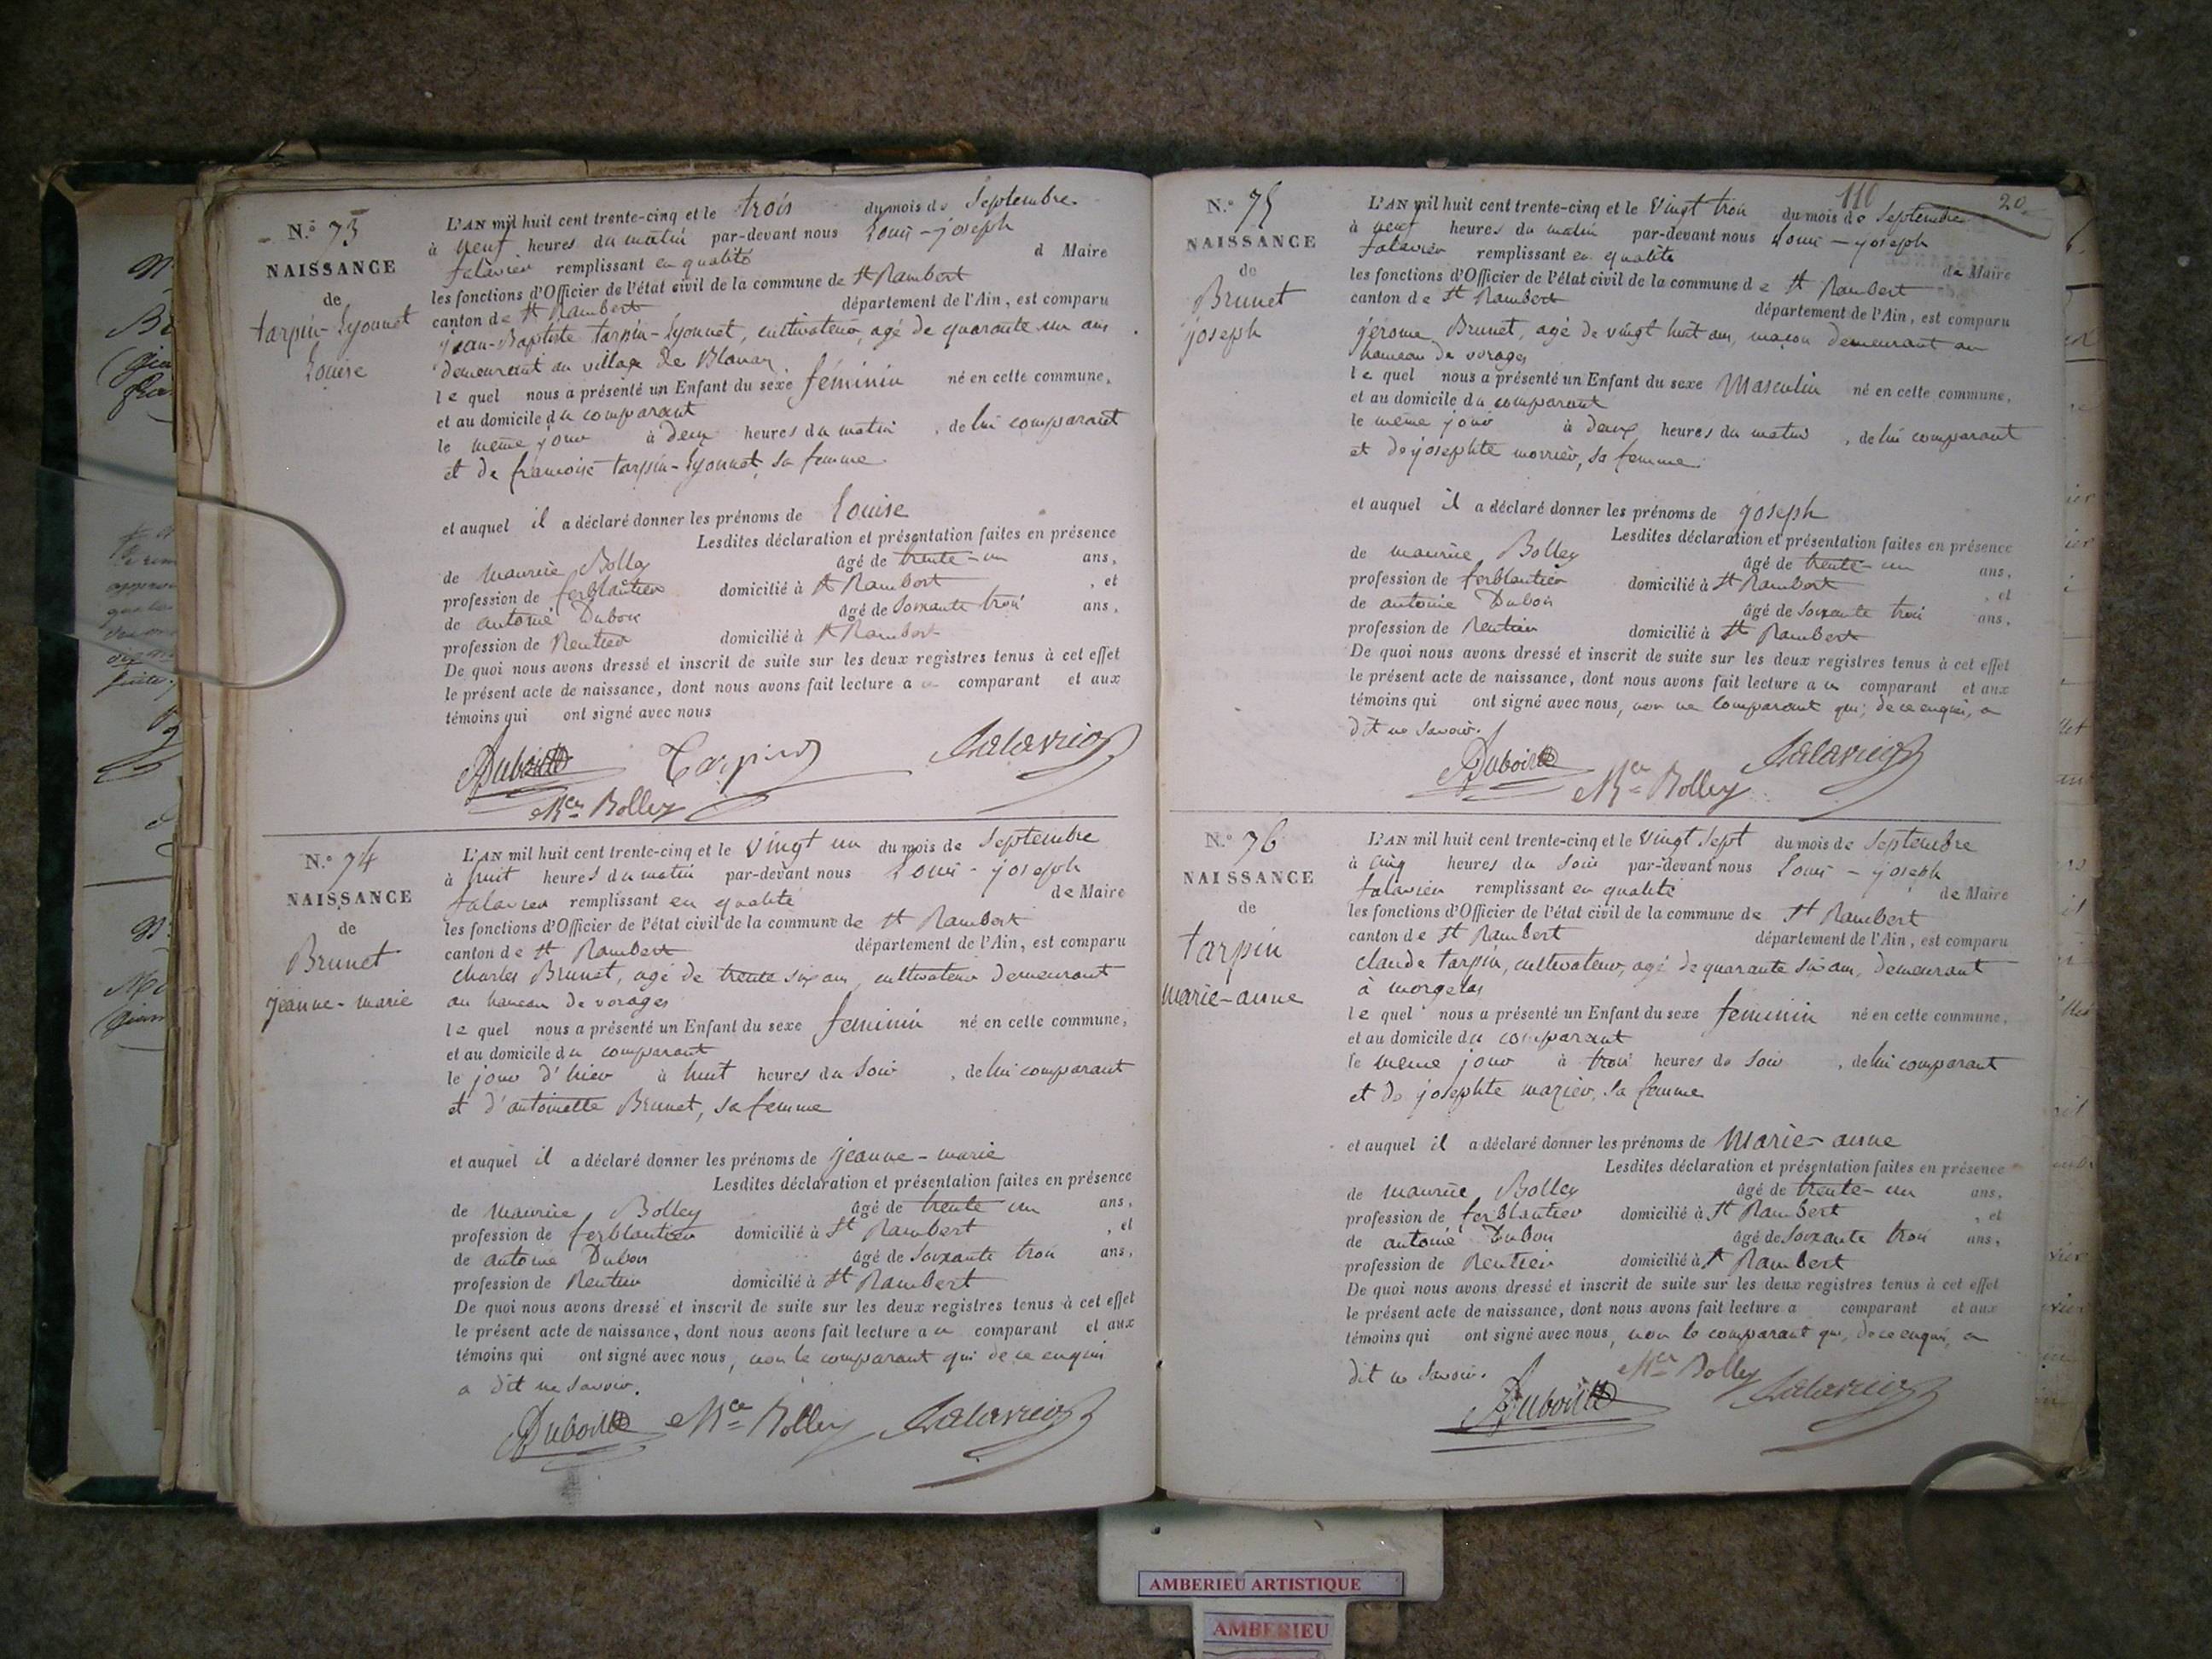 N.° 73
NAISSANCE
de
tarpin-Lyonnet
Louise
L'AN mil huit cent trente-cinq et le trois du mois de Septembre
à neuf heures du matin par-devant nous Louis-joseph
falavier remplissant en qualité d Maire
les fonctions d'Officier de l'état civil de la commune de St Rambert
canton de St Rambert département de l'Ain, est comparu
jean-Baptiste tarpin-Lyonnet, cultivateur, agé de quarante un ans
demeurant au village de Blanaz
le quel nous a présenté un Enfant du sexe féminin né en cette commune,
et au domicile du comparant
le même jour à deux heures du matin, de lui comparant
et de francoise tarpin-Lyonnet, sa femme
et auquel il a déclaré donner les prénoms de Louise
Lesdites déclaration et présentation faites en présence
de maurice Bolley âgé de trente-un ans,
profession de ferblantier domicilié à St Rambert, et
de antoine Dubois âgé de Soixante trois ans,
profession de Rentier domicilié à St Rambert
De quoi nous avons dressé et inscrit de suite sur les deux registres tenus à cet effet
le présent acte de naissance, dont nous avons fait lecture a u comparant et aux
témoins qui ont signé avec nous
Dubois Tarpin falavier
Mce Bolley
N.° 74
NAISSANCE
de
Brunet
jeanne-marie
L'AN mil huit cent trente-cinq et le vingt un du mois de Septembre
à huit heures du matin par-devant nous Louis-joseph
falavier remplissant en qualité de Maire
les fonctions d'Officier de l'état civil de la commune de St Rambert
canton de St Rambert département de l'Ain, est comparu
charles Brunet, agé de trente six ans, cultivateur demeurant
au hameau de vorages
le quel nous a présenté un Enfant du sexe féminin né en cette commune,
et au domicile du comparant
le jour d'hier à huit heures du Soir, de lui comparant
et d'antoinette Brunet, sa femme
et auquel il a déclaré donner les prénoms de jeanne-marie
Lesdites déclaration et présentation faites en présence
de maurice Bolley âgé de trente un ans,
profession de ferblantier domicilié à St Rambert, et
de antoine Dubois âgé de Soixante trois ans,
profession de Rentier domicilié à St Rambert
De quoi nous avons dressé et inscrit de suite sur les deux registres tenus à cet effet
le présent acte de naissance, dont nous avons fait lecture a u comparant et aux
témoins qui ont signé avec nous, non le comparant qui de ce enquis
a dit ne Savoir.
Dubois Mce Bolley falavier
110
20
N.° 75
NAISSANCE
de
Brunet
joseph
L'AN mil huit cent trente-cinq et le vingt trois du mois de Septembre
à neuf heures du matin par-devant nous Louis-joseph
falavier remplissant en qualité de Maire
les fonctions d'Officier de l'état civil de la commune de St Rambert
canton de St Rambert département de l'Ain, est comparu
jérome Brunet, agé de vingt huit ans, maçon demeurant au
hameau de vorages
le quel nous a présenté un Enfant du sexe Masculin né en cette commune,
et au domicile du comparant
le même jour à deux heures du matin, de lui comparant
et de josephte morrier, sa femme
et auquel il a déclaré donner les prénoms de joseph
Lesdites déclaration et présentation faites en présence
de maurice Bolley âgé de trente-un ans,
profession de ferblantier domicilié à St Rambert, et
de antoine Dubois âgé de Soixante trois ans,
profession de Rentier domicilié à St Rambert
De quoi nous avons dressé et inscrit de suite sur les deux registres tenus à cet effet
le présent acte de naissance, dont nous avons fait lecture a u comparant et aux
témoins qui ont signé avec nous, non le comparant qui, de ce enquis, a
dit ne Savoir.
Dubois Mce Bolley falavier
N.° 76
NAISSANCE
de
tarpin
marie-anne
L'AN mil huit cent trente-cinq et le vingt Sept du mois de Septembre
à cinq heures du Soir par-devant nous Louis-joseph
falavier remplissant en qualité de Maire
les fonctions d'Officier de l'état civil de la commune de St Rambert
canton de St Rambert département de l'Ain, est comparu
claude tarpin, cultivateur, agé de quarante six ans, demeurant
à morgelas
le quel nous a présenté un Enfant du sexe féminin né en cette commune,
et au domicile du comparant
le même jour à trois heures du Soir, de lui comparant
et de josephte mazier, sa femme
et auquel il a déclaré donner les prénoms de Marie-anne
Lesdites déclaration et présentation faites en présence
de maurice Bolley âgé de trente-un ans,
profession de ferblantier domicilié à St Rambert, et
de antoine Dubois âgé de Soixante trois ans,
profession de Rentier domicilié à St Rambert
De quoi nous avons dressé et inscrit de suite sur les deux registres tenus à cet effet
le présent acte de naissance, dont nous avons fait lecture a comparant et aux
témoins qui ont signé avec nous, non le comparant qui, de ce enquis, a
dit ne Savoir.
Mce Bolley
Dubois falavier
AMBERIEU ARTISTIQUE
AMBERIEU